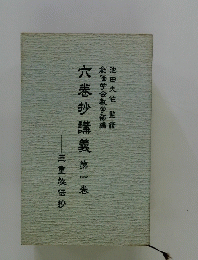 池田大作 監修
創価学会教学部編
六巻抄講義 第一巻
――三重秘伝抄